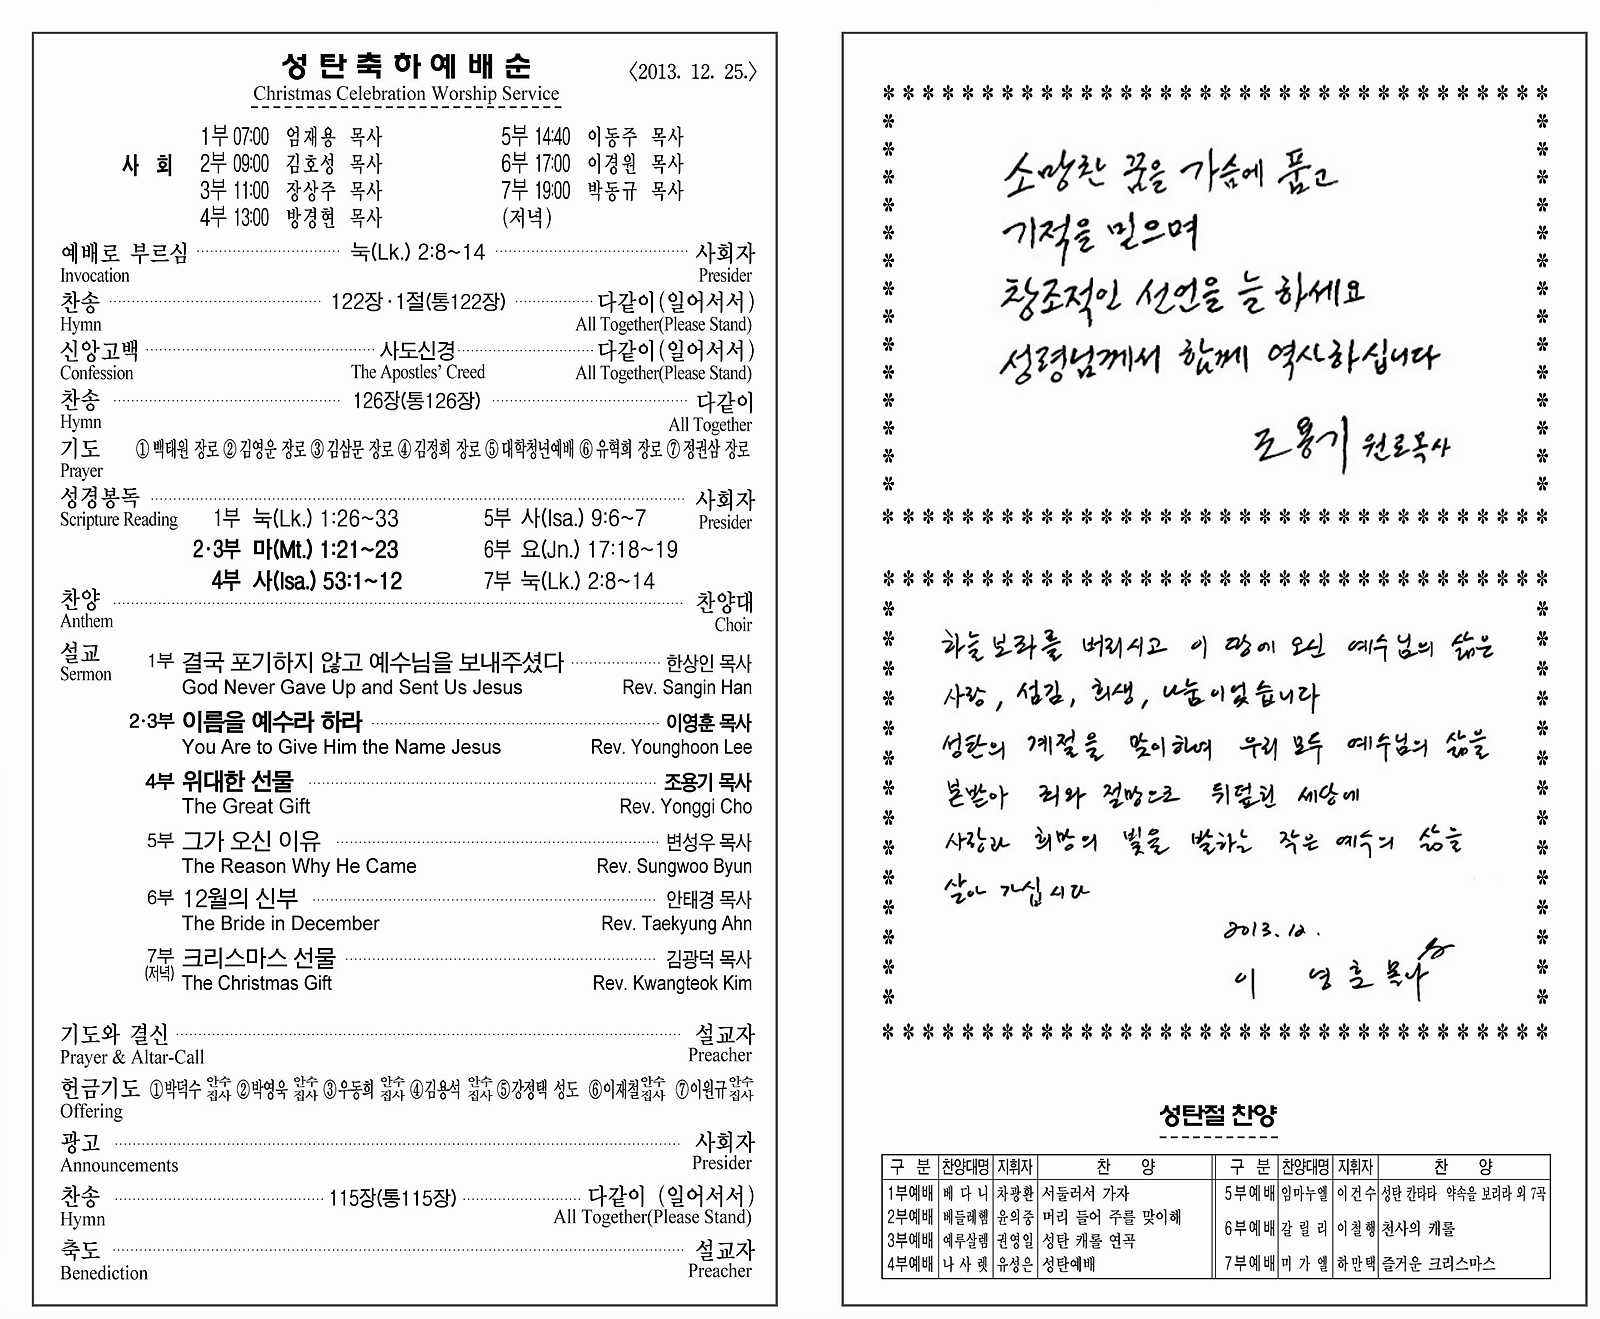 성탄축하예배순 〈2013. 12. 25.〉
Christmas Celebration Worship Service
사 회
1부 07:00 엄재용 목사
2부 09:00 김호성 목사
3부 11:00 장상주 목사
4부 13:00 방경현 목사
5부 14:40 이동주 목사
6부 17:00 이경원 목사
7부 19:00 박동규 목사
(저녁)
예배로 부르심 눅(Lk.) 2:8~14 사회자
Invocation Presider
찬송 122장·1절(통122장) 다같이(일어서서)
Hymn All Together(Please Stand)
신앙고백 사도신경 다같이(일어서서)
Confession The Apostles' Creed All Together(Please Stand)
찬송 126장(통126장) 다같이
Hymn All Together
기도 ①백태원 장로 ②김영운 장로 ③김삼문 장로 ④김정희 장로 ⑤대학청년예배 ⑥유혁희 장로 ⑦정권삼 장로
Prayer
성경봉독 사회자
Scripture Reading Presider
1부 눅(Lk.) 1:26~33 5부 사(Isa.) 9:6~7
2·3부 마(Mt.) 1:21~23 6부 요(Jn.) 17:18~19
4부 사(Isa.) 53:1~12 7부 눅(Lk.) 2:8~14
찬양 찬양대
Anthem Choir
설교
Sermon
1부 결국 포기하지 않고 예수님을 보내주셨다 한상인 목사
God Never Gave Up and Sent Us Jesus Rev. Sangin Han
2·3부 이름을 예수라 하라 이영훈 목사
You Are to Give Him the Name Jesus Rev. Younghoon Lee
4부 위대한 선물 조용기 목사
The Great Gift Rev. Yonggi Cho
5부 그가 오신 이유 변성우 목사
The Reason Why He Came Rev. Sungwoo Byun
6부 12월의 신부 안태경 목사
The Bride in December Rev. Taekyung Ahn
7부 크리스마스 선물 김광덕 목사
(저녁) The Christmas Gift Rev. Kwangteok Kim
기도와 결신 설교자
Prayer & Altar-Call Preacher
헌금기도 ①박덕수 안수집사 ②박영욱 안수집사 ③우동희 안수집사 ④김용석 안수집사 ⑤강정택 성도 ⑥이재철 안수집사 ⑦이원규 안수집사
Offering
광고 사회자
Announcements Presider
찬송 115장(통115장) 다같이 (일어서서)
Hymn All Together(Please Stand)
축도 설교자
Benediction Preacher
소망찬 꿈을 가슴에 품고
기적을 믿으며
창조적인 선언을 늘 하세요
성령님께서 함께 역사하십니다
조용기 원로목사
하늘보좌를 버리시고 이 땅에 오신 예수님의 삶은
사랑, 섬김, 희생, 나눔이었습니다
성탄의 계절을 맞이하여 우리 모두 예수님의 삶을
본받아 죄와 절망으로 뒤덮힌 세상에
사랑과 희망의 빛을 발하는 작은 예수의 삶을
살아 가십시다
2013. 12.
이 영훈 목사
성탄절 찬양
구 분 찬양대명 지휘자 찬 양
1부예배 베다니 차광환 서둘러서 가자
2부예배 베들레헴 윤의중 머리 들어 주를 맞이해
3부예배 예루살렘 권영일 성탄 캐롤 연곡
4부예배 나사렛 유성은 성탄예배
구 분 찬양대명 지휘자 찬 양
5부예배 임마누엘 이건수 성탄 칸타타 약속을 보리라 외 7곡
6부예배 갈릴리 이철행 천사의 캐롤
7부예배 미가엘 하만택 즐거운 크리스마스